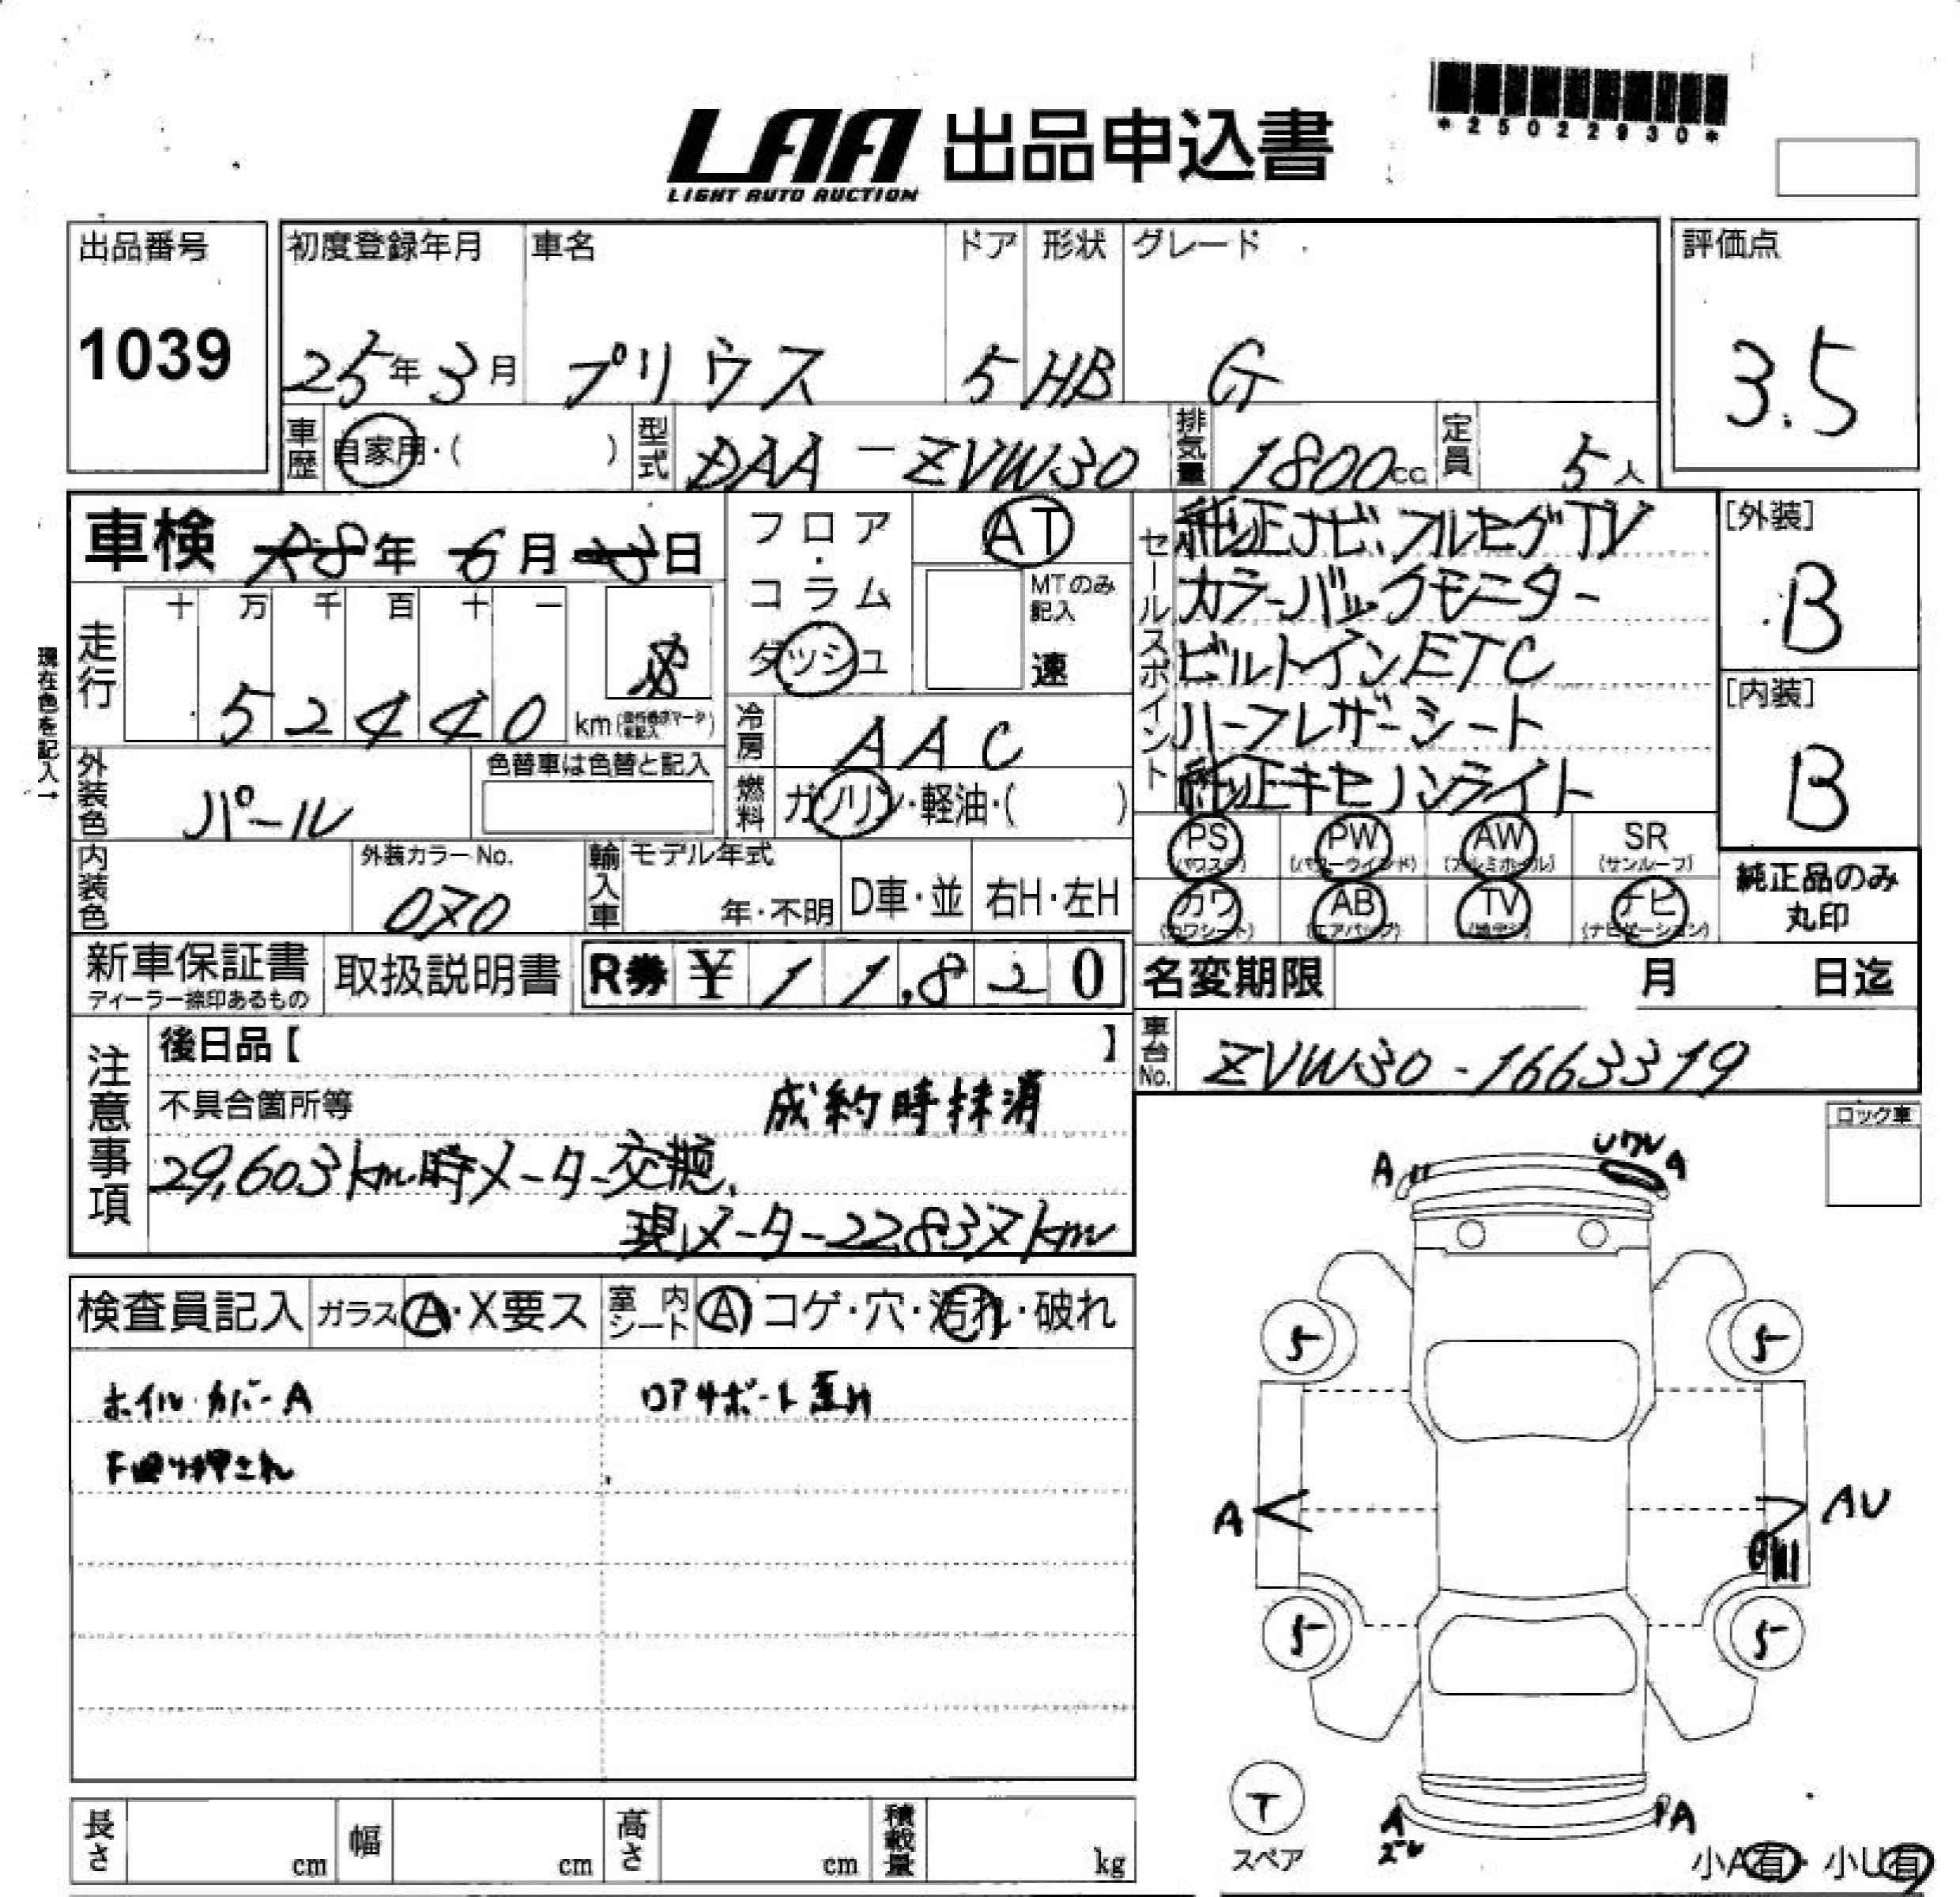 *25022930*
LAA 出品申込書
LIGHT AUTO AUCTION
出品番号
1039
初度登録年月 車名 ドア 形状 グレード
25年3月 プリウス 5 HB G
評価点
3.5
車歴 自家用・( ) 型式 DAA-ZVW30 排気量 1800cc 定員 5人
車検 R8年 6月 日
フロア・コラム ダッシュ
AT
MTのみ記入
速
セールスポイント
純正ナビ、フルセグTV
カラーバックモニター
ビルトインETC
ハーフレザーシート
純正キセノンライト
[外装]
B
[内装]
B
現在色を記入→
走行 十 万 千 百 十 一
52440 km
冷房 AAC
外装色 パール
色替車は色替と記入
燃料 ガソリン・軽油・( )
PS (パワステ) PW (パワーウインド) AW (アルミホイール) SR (サンルーフ)
カワ (カワシート) AB (エアバック) TV ナビ (ナビゲーション)
純正品のみ丸印
内装色 外装カラーNo. 070
輸入車 モデル年式 年・不明 D車・並 右H・左H
新車保証書 ディーラー捺印あるもの
取扱説明書
R券 ¥11,820
名変期限 月 日迄
車台No. ZVW30-1663319
注意事項
後日品【 】
不具合箇所等
成約時抹消
29,603km時メーター交換、
現メーター22,837km
ロック車
検査員記入 ガラス A・X要ス 室内シート A コゲ・穴・汚れ・破れ
ホイルカバーA
ロアサポート歪み
F廻り押され
A
A
5 5
A
AU
5 5
T
スペア
A
A
小A有・小U有
長さ cm 幅 cm 高さ cm 積載量 kg